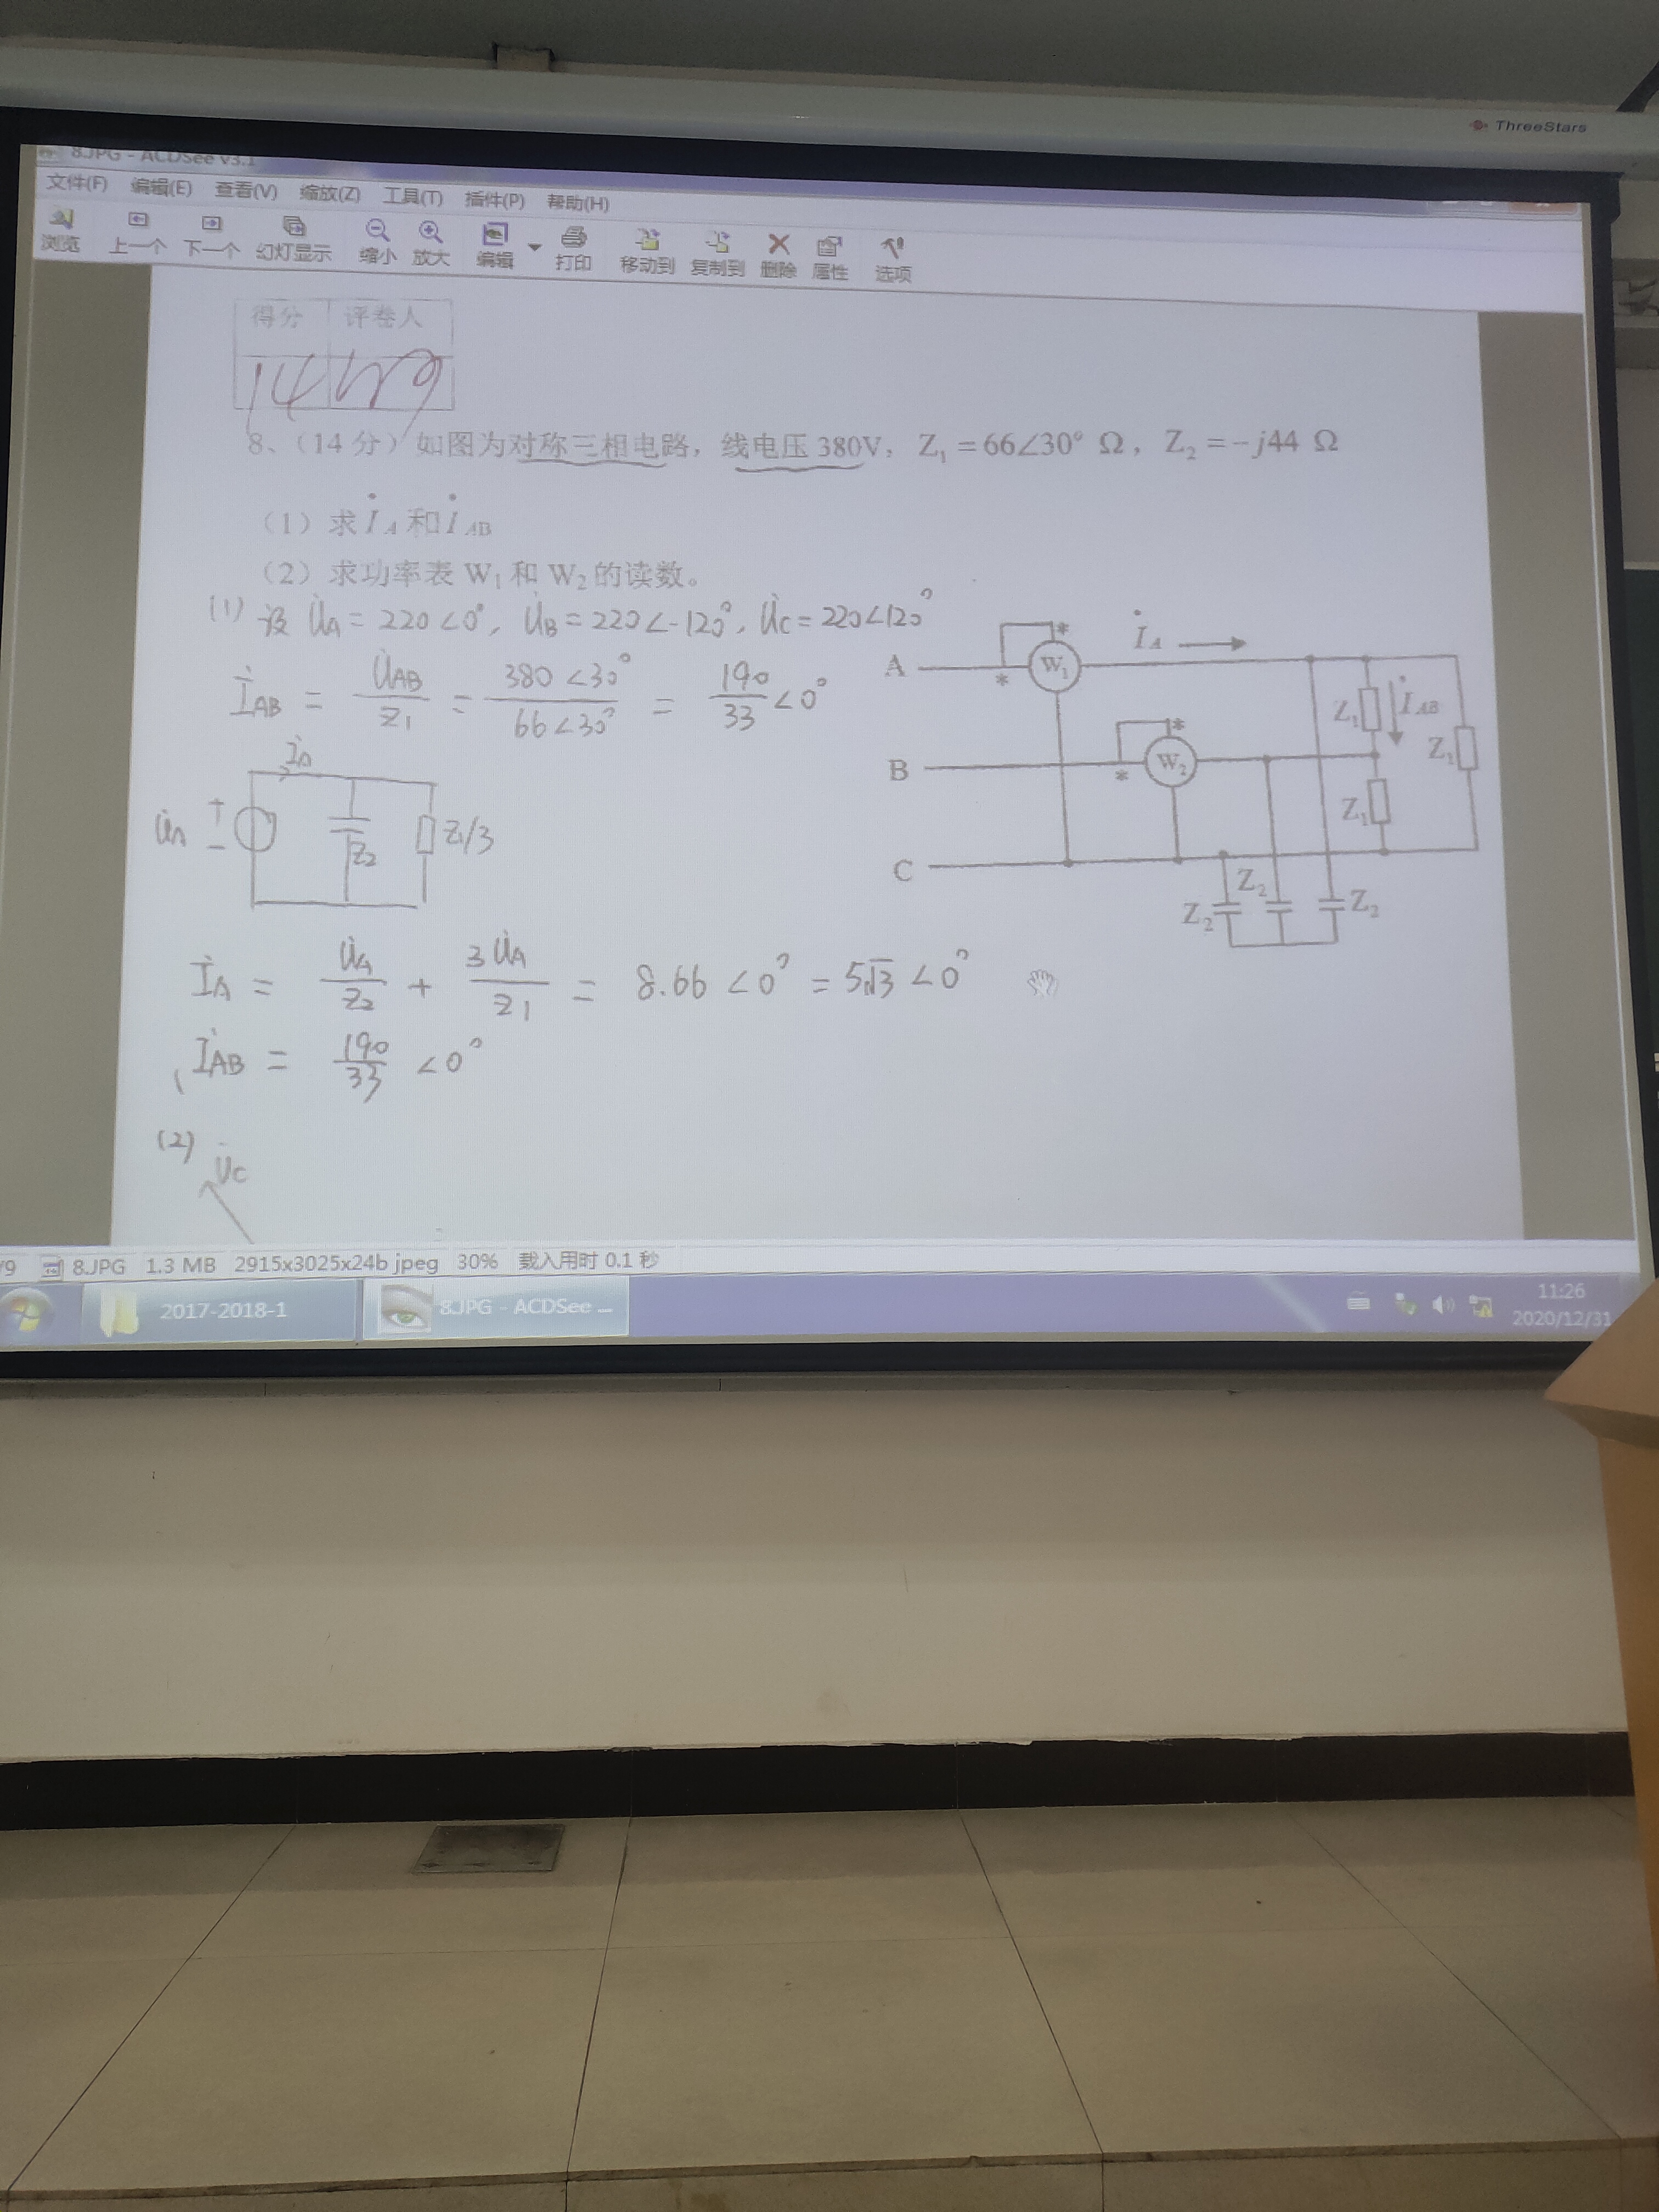 ThreeStars
8.JPG - ACDSee v3.1
文件(F) 编辑(E) 查看(V) 缩放(Z) 工具(T) 插件(P) 帮助(H)
浏览 上一个 下一个 幻灯显示 缩小 放大 编辑 打印 移动到 复制到 删除 属性 选项
得分 评卷人
14
8、(14 分) 如图为对称三相电路，线电压 380V，Z₁ = 66∠30° Ω，Z₂ = -j44 Ω
(1) 求 İ_A 和 İ_AB
(2) 求功率表 W₁ 和 W₂ 的读数。
(1) 设 U̇A = 220∠0°, U̇B = 220∠-120°, U̇C = 220∠120°
İAB = U̇AB/Z1 = 380∠30°/66∠30° = 190/33 ∠0°
İA
U̇A + − Z2 Z1/3
A * W₁ * İ_A
Z₁ İ_AB Z₁
B * W₂ *
Z₁
C
Z₂ Z₂ Z₂
İA = U̇A/Z2 + 3U̇A/Z1 = 8.66∠0° = 5√3∠0°
İAB = 190/33 ∠0°
(2)
U̇C
/9 8.JPG 1.3 MB 2915x3025x24b jpeg 30% 载入用时 0.1 秒
2017-2018-1 8.JPG - ACDSee ...
11:26
2020/12/31